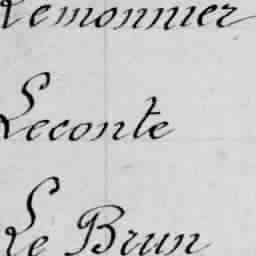 Lemonnier
Leconte
Le Brun